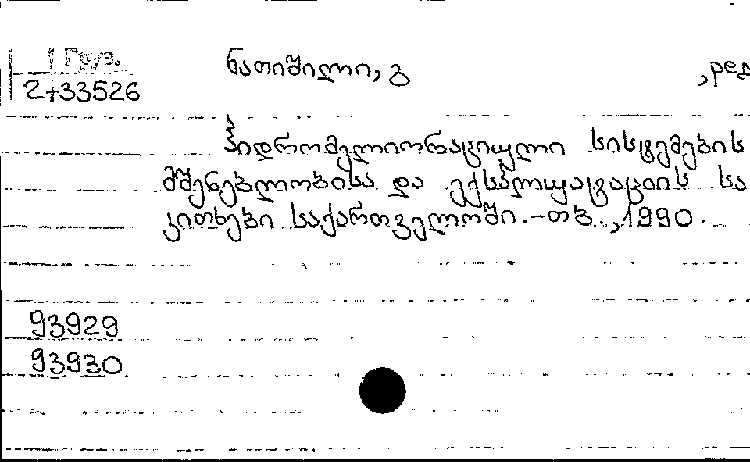 1 Груз.
2+33526
ნათიშილი, გ , ред
ჰიდრომელიორაციული სისტემების
მშენებლობისა და ექსპლუატაციის სა
კითხები საქართველოში. - თბ., 1990.
93929
93930